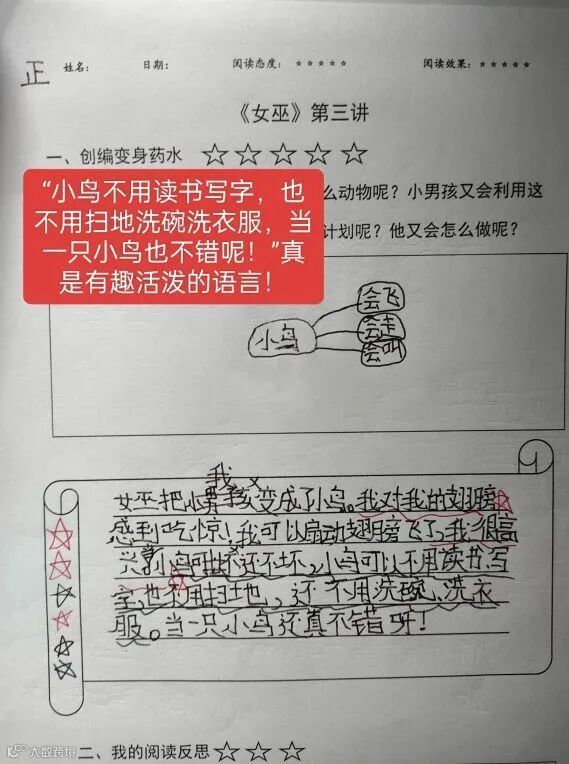 正
姓名： 日期： 阅读态度：☆☆☆☆☆ 阅读效果：☆☆☆☆☆
《女巫》第三讲
一、创编变身药水 ☆☆☆☆☆
“小鸟不用读书写字，也
不用扫地洗碗洗衣服，当
一只小鸟也不错呢！”真
是有趣活泼的语言！
么动物呢？小男孩又会利用这
计划呢？他又会怎么做呢？
小鸟
会飞
会走
会叫
我
女巫把小男孩变成了小鸟。我对我的翅膀
感到吃惊！我可以扇动翅膀飞了，我很高
兴，当小鸟还不坏，小鸟可以不用读书、写
字，也不用扫地，还不用洗碗、洗衣
服。当一只小鸟还真不错呀！
二、我的阅读反思 ☆☆☆
大数跨境